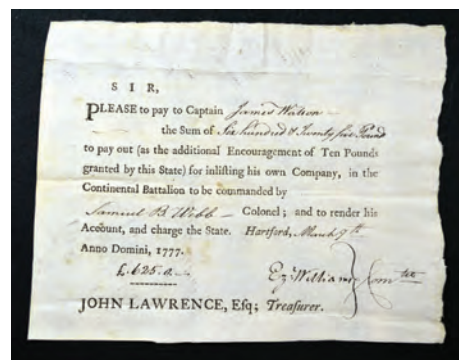 S I R,
PLEASE to pay to Captain James Watson
the Sum of Six hundred & Twenty five Pound
to pay out (as the additional Encouragement of Ten Pounds
granted by this State) for inlisting his own Company, in the
Continental Battalion to be commanded by
Samuel B. Webb Colonel; and to render his
Account, and charge the State. Hartford, March 9th
Anno Domini, 1777.
£.625.0.-
Ez: Williams Comtee
JOHN LAWRENCE, Esq; Treasurer.